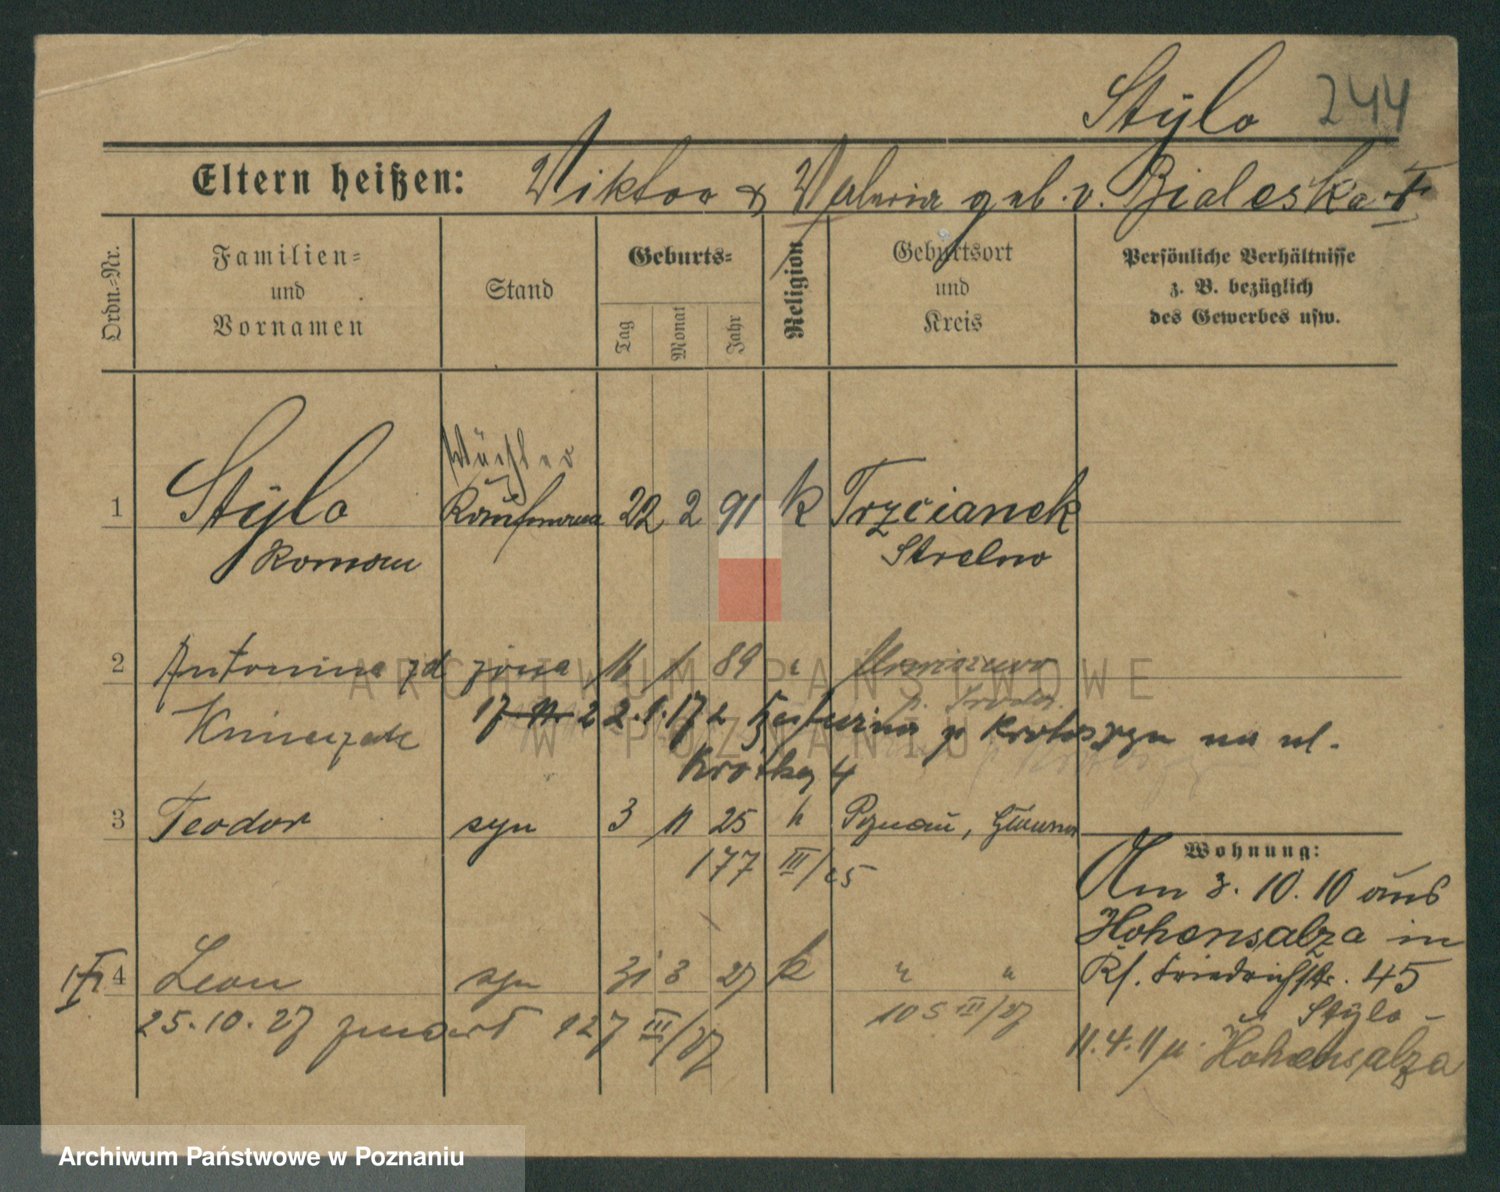 Stylo 244
Eltern heißen: Viktor & Valeria geb. v. Bialeska
Ordn.-Nr.
Familien-
und
Vornamen
Stand
Geburts-
Tag
Monat
Jahr
Religion
Geburtsort
und
Kreis
Persönliche Verhältnisse
z. B. bezüglich
des Gewerbes usw.
1 Stylo Kaufmann 22 2 91 k Trzcianek
Roman Strelno
2 Antonina zd żona 89
17 2
p. Krotoszyn na ul.
4
3 Teodor syn 3 11 25 k Poznań,
177 III/25
Wohnung:
Am 3. 10. 10 aus
Hohensalza in
Friedrichstr. 45
Stylo
11. 4. 11 Hohensalza
4 Leon syn 31 3 27 k " "
25. 10. 27 zmarł 127 III/27
105 III/27
ARCHIWUM PAŃSTWOWE
W POZNANIU
Archiwum Państwowe w Poznaniu